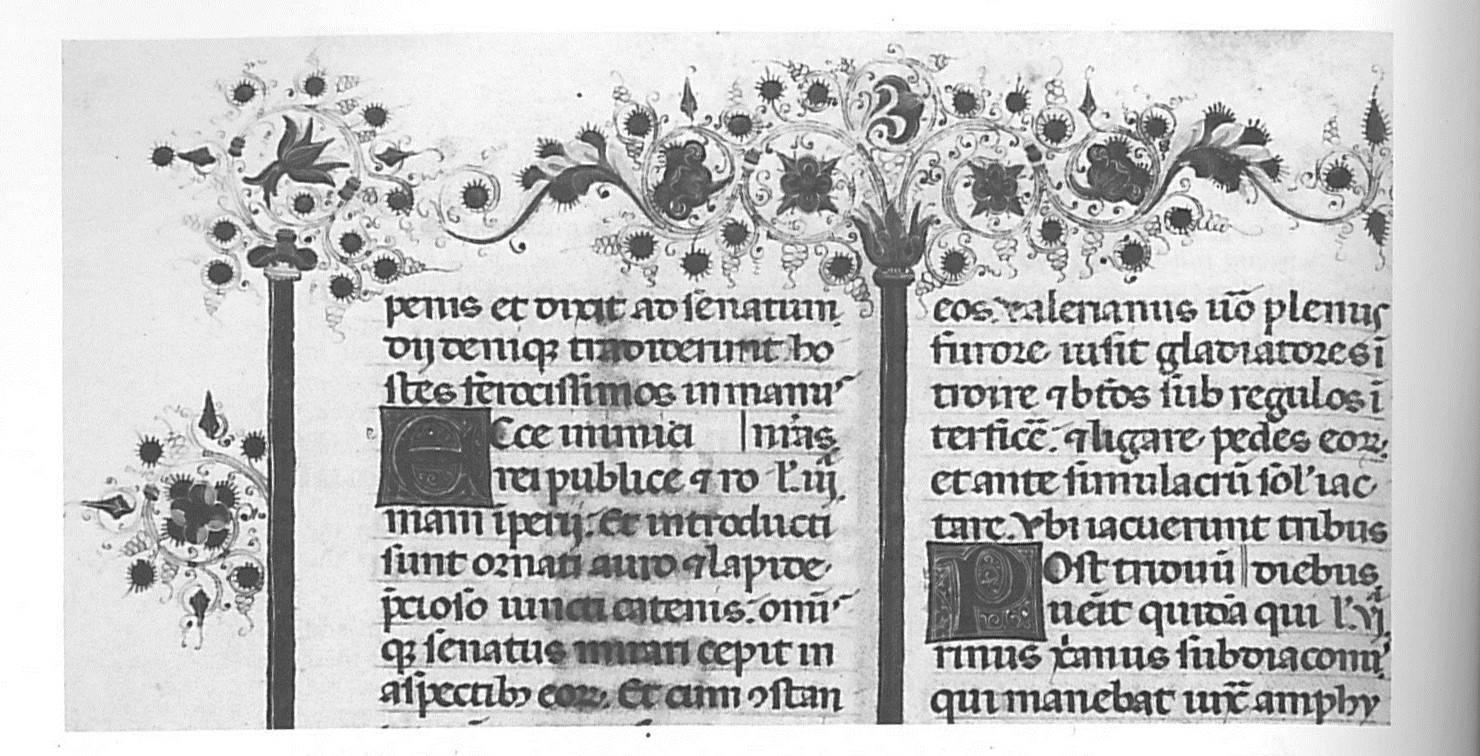 penis et dixit ad senatum.
Dij deniqꝫ tradiderunt ho
stes ferocissimos in manuꝰ
Ecce inimici | nr̃as
rei publice ⁊ ro l'. iiĳ.
mani īperij. Et introducti
sunt ornati auro ⁊ lapide
p̃cioso uincti catenis. omīꝰ
qꝫ senatus mirari cepit in
aspectibꝫ eoꝝ. Et cum ꝯstan
eos. Valerianus uō plenus
furore iusit gladiatores ī
troire ⁊ btōs sub regulos ī
terficẽ. ⁊ ligare pedes eoꝝ.
et ante simulacrū sol' iac
tare. Vbi iacuerunt tribus
Post triduū || diebus
ueīt quidā qui l'. vj.
rinus x̃anus subdiaconuꝰ
qui manebat iux̃ amphy